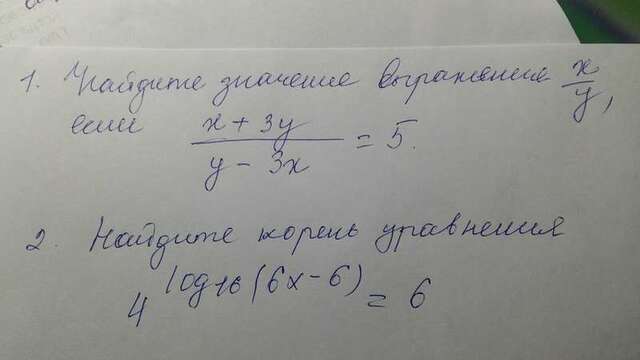 1. Найдите значение выражения x/y,
если (x + 3y)/(y - 3x) = 5.
2. Найдите корень уравнения
4^(log16(6x-6)) = 6